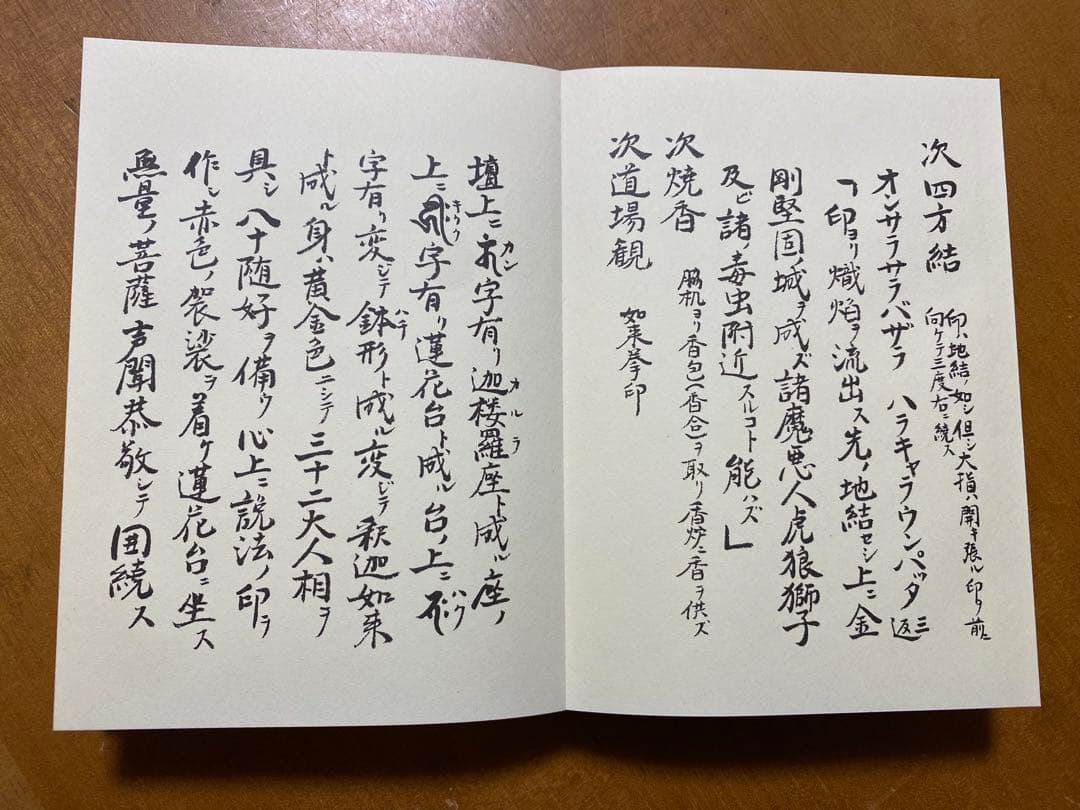 次四方結 印ハ地結ノ如シ但シ大指ハ開キ張ル印ヲ前ニ
向ケテ三度右ニ繞ス
オンサラサラバザラ ハラキャラウンパッタ 三返
「印ヨリ熾焔ヲ流出ス先ノ地結セシ上ニ金
剛堅固ノ城ヲ成ズ諸魔悪人虎狼獅子
及ビ諸ノ毒虫附近スルコト能ハズ」
次焼香 脇机ヨリ香包(香合)ヲ取リ香炉ニ香ヲ供ズ
次道場観 如来拳印
壇上ニ字有リ迦楼羅座ト成ル座ノ
カン カルラ
上ニ字有リ蓮花台ト成ル台ノ上ニ
キリク バク
字有リ変ジテ鉢形ト成ル変ジテ釈迦如来
ハテ
ト成ル身ハ黄金色ニシテ三十二大人相ヲ
具シ八十随好ヲ備ウ心上ニ説法ノ印ヲ
作シ赤色ノ袈裟ヲ着ケ蓮花台ニ坐ス
無量ノ菩薩声聞恭敬シテ囲繞ス